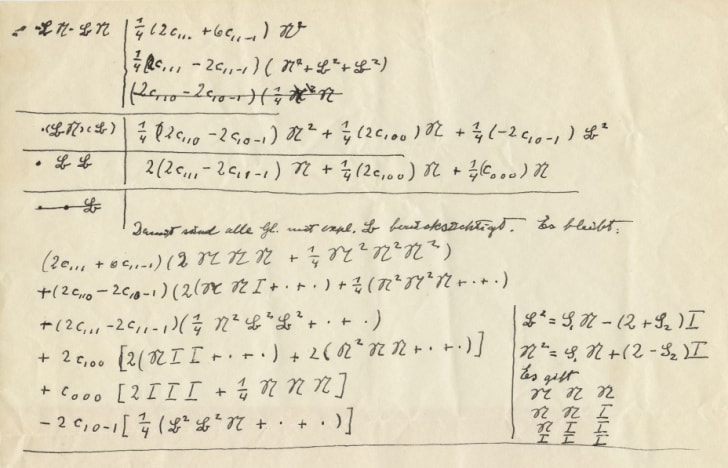 · 𝔏𝔑 · 𝔏𝔑 | ¼ (2c₁₁₁ + 6c₁₁₋₁) 𝔑²
¼(2c₁₁₁ − 2c₁₁₋₁) ( 𝔑² + 𝔏² + 𝔏²)
(2c₁₁₀ − 2c₁₀₋₁) (¼ 𝔑² 𝔑
·(𝔏𝔑)(𝔏) | ¼ (2c₁₁₀ − 2c₁₀₋₁) 𝔑² + ¼ (2c₁₀₀) 𝔑 + ¼ (−2c₁₀₋₁) 𝔏²
· 𝔏 𝔏 | 2(2c₁₁₁ − 2c₁₁₋₁) 𝔑 + ¼ (2c₁₀₀) 𝔑 + ¼ (c₀₀₀) 𝔑
· · 𝔏
Damit sind alle Gl. mit expl. 𝔏 berücksichtigt. Es bleibt:
(2c₁₁₁ + 6c₁₁₋₁) (2 𝔑 𝔑 𝔑 + ¼ 𝔑² 𝔑² 𝔑²)
+ (2c₁₁₀ − 2c₁₀₋₁) (2(𝔑 𝔑 I + · + ·) + ¼ (𝔑² 𝔑² 𝔑 + · + ·)
+ (2c₁₁₁ − 2c₁₁₋₁) (¼ 𝔑² 𝔏² 𝔏² + · + ·)
+ 2c₁₀₀ [2(𝔑 I I + · + ·) + 2(𝔑² 𝔑 𝔑 + · + ·)]
+ c₀₀₀ [2 I I I + ¼ 𝔑 𝔑 𝔑]
− 2c₁₀₋₁ [¼ (𝔏² 𝔏² 𝔑 + · + ·)]
𝔏² = S₁ 𝔑 − (2 + S₂) I
𝔑² = S₁ 𝔑 + (2 − S₂) I
Es gilt
𝔑 𝔑 𝔑
𝔑 𝔑 I
𝔑 I I
I I I